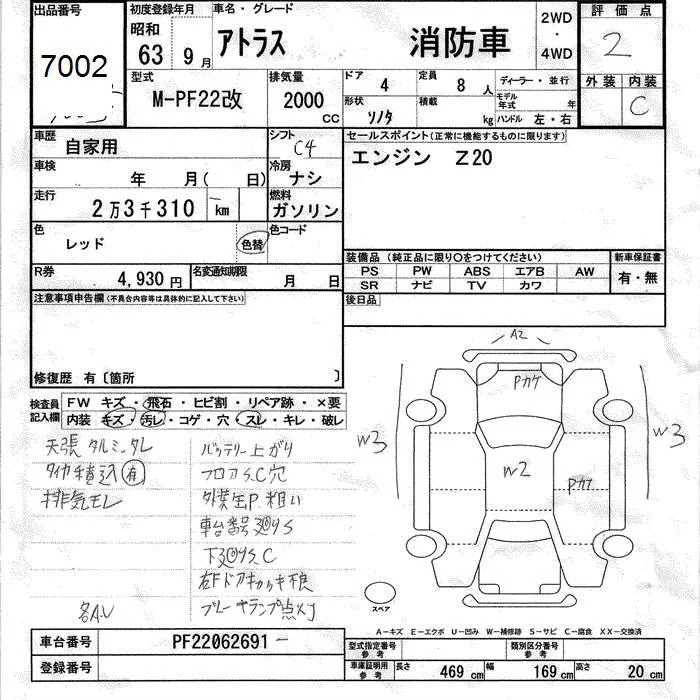 出品番号
7002
初度登録年月
昭和
63 9月
車名・グレード
アトラス 消防車
2WD
・
4WD
評価点
2
外装 内装
C
型式
M-PF22改
排気量
2000
CC
ドア 4
定員 8人
ディーラー・並行
モデル年式 年
形状 積載 kg
ハンドル 左・右
車歴
自家用
シフト
C4
セールスポイント(正常に機能するものに限ります)
エンジン Z20
車検
年 月( 日)
冷房
ナシ
走行
2万3千310 km
燃料
ガソリン
色
レッド 色替
色コード
R券
4,930円
名変通知期限
月 日
装備品 (純正品に限り○をつけてください)
PS PW ABS エアB AW
SR ナビ TV カワ
新車保証書
有・無
後日品
注意事項申告欄(不具合内容等は具体的に記入して下さい)
修復歴 有〔箇所 〕
検査員記入欄
FW キズ・飛石・ヒビ割・リペア跡・×要
内装 キズ・汚レ・コゲ・穴・スレ・キレ・破レ
天張タルミ、タレ
タイヤ積込有
排気モレ
各A.U
バッテリー上がり
フロアS.C穴
外装全P粗い
車台番号
下廻りS.C
ブレーキランプ点灯
A2
Pカケ
W3
W2
Pカケ
W3
スペア
A-キズ E-エクボ U-凹み W-補修跡 S-サビ C-腐食 XX-交換済
車台番号
PF22062691
登録番号
型式指定番号
参考
類別区分番号
参考
車庫証明用
参考
長さ 469cm 幅 169cm 高さ 20cm